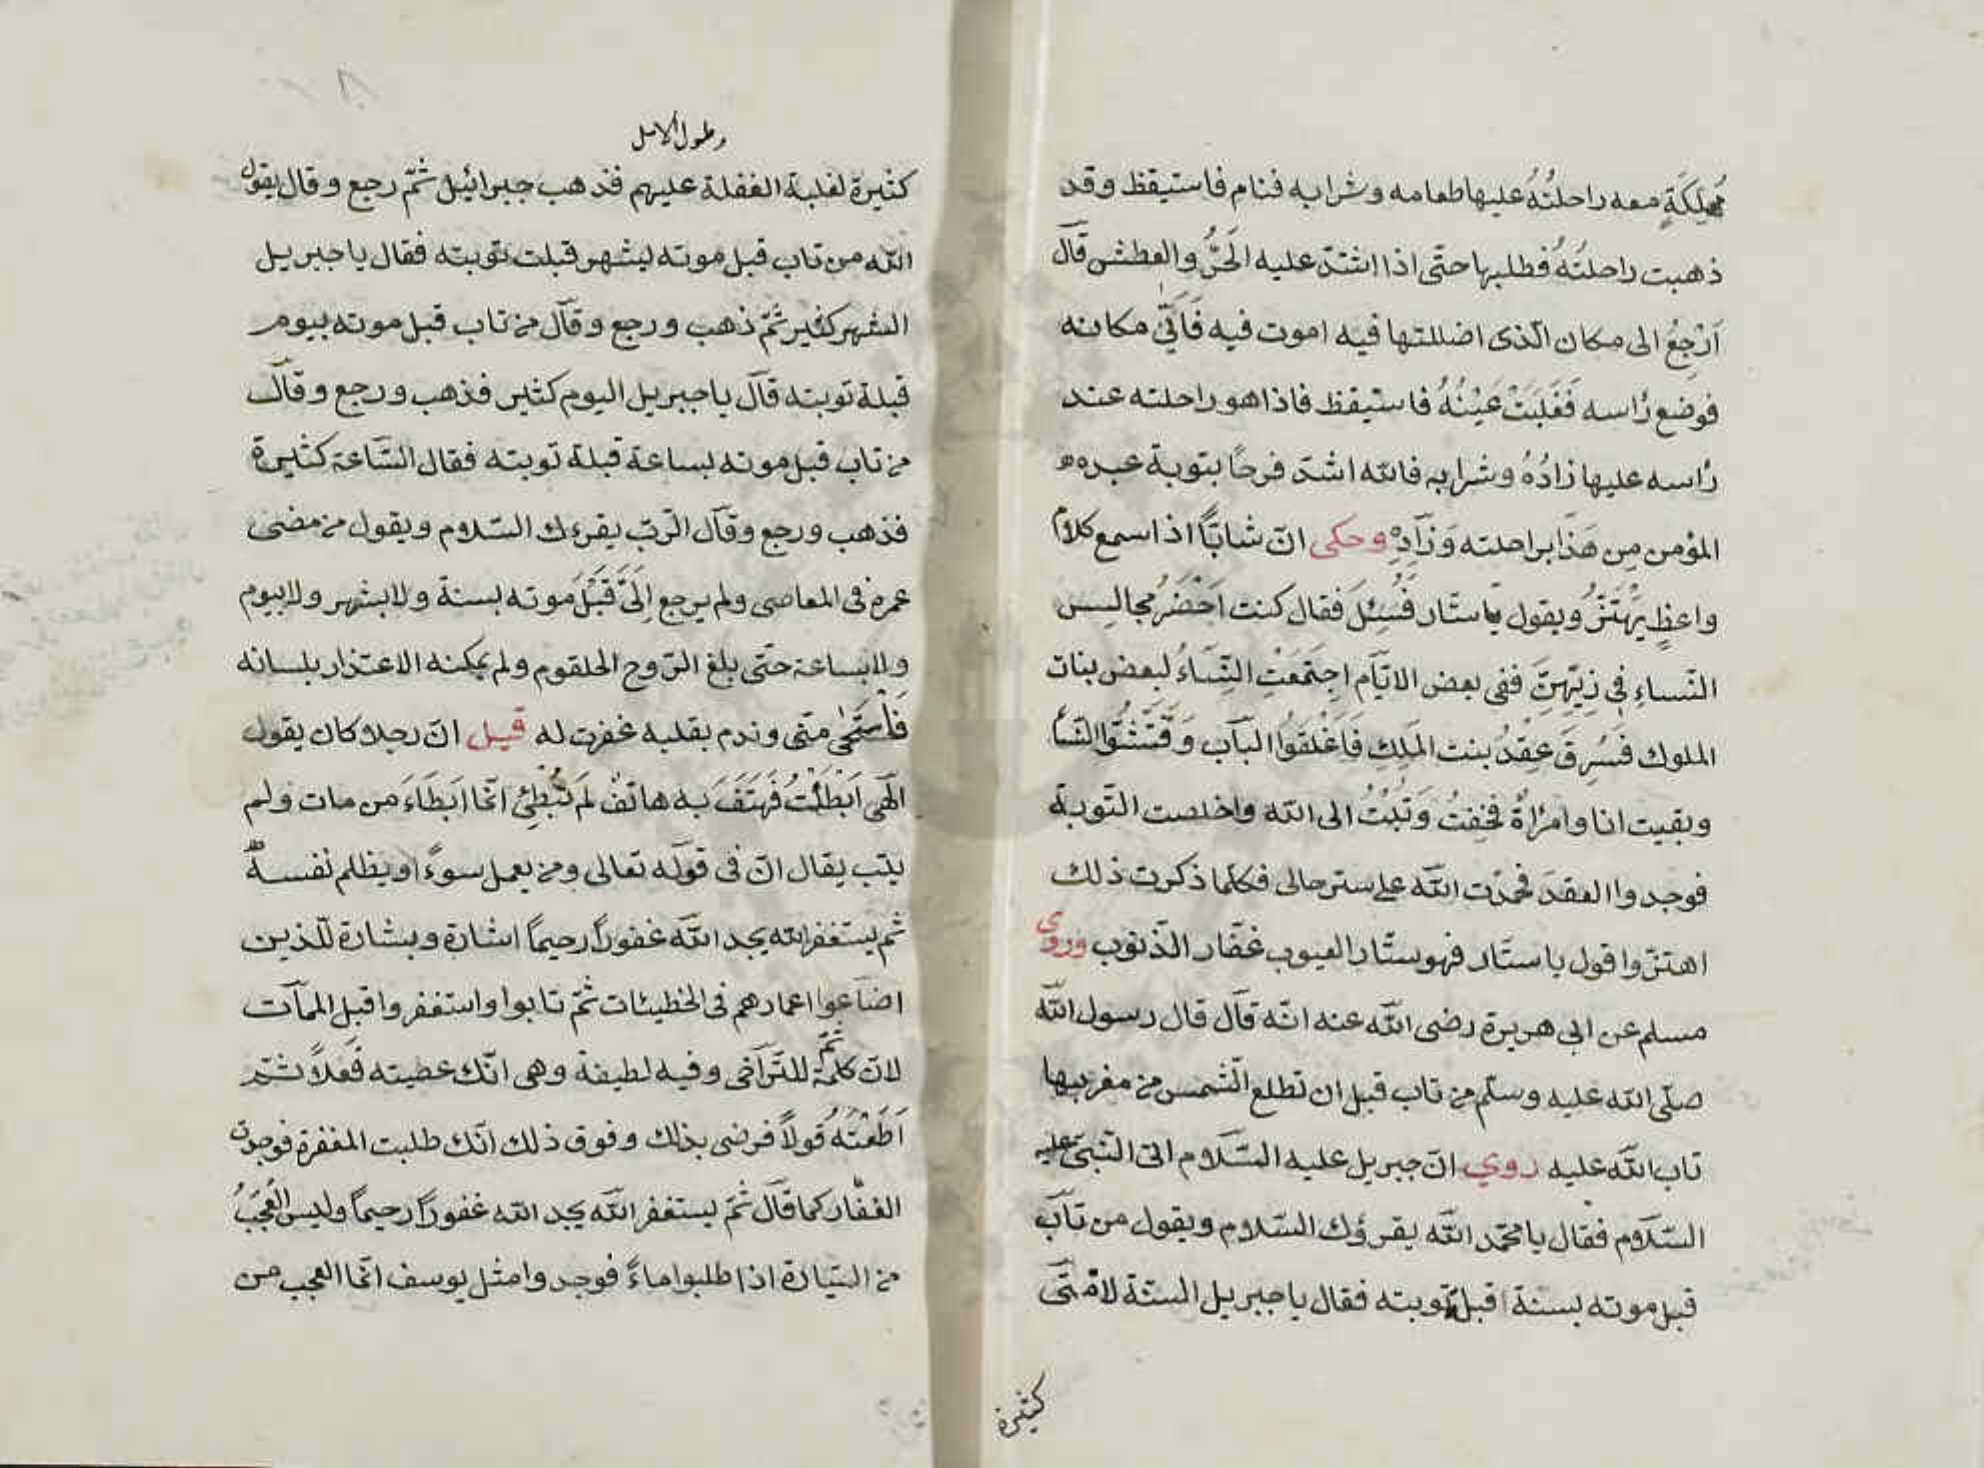 مُهلِكَةٍ معه راحلتُهُ عليها طعامه وشرابه فنام فاستيقظ وقد
ذهبت راحلتُهُ فطلبها حتّى اذا اشتدّ عليه الحَرُّ والعطش قال
اَرْجِعُ الى مكان الّذى اضللتها فيه اموت فيه فَاَتَى مكانه
فوضع رأسه فَغَلَبَتْ عَيْنُهُ فاستيقظ فاذا هو راحلته عند
رأسه عليها زادُهُ وشرابه فالله اشدّ فرحًا بتوبة عبده
المؤمن مِن هَذَا براحلته وَزَادِهِ وحكى انّ شابّاً اذا سمع كلام
واعظٍ يَهْتَزُّ ويقول يا ستّار فَسُئِلَ فقال كنت اَحْضَرُ مجالس
النّساءِ فى زِيِّهِنَّ ففى بعض الايّام اجتَمَعَتِ النِّسَاءُ لبعض بنات
الملوك فَسُرِقَ عِقْدُ بنت المَلِكِ فَاَغْلَقوُا البَاب وَفَتَّشُوُا النّسا
وبقيت انا وامرأةٌ فَخِفتُ وَتُبْتُ الى الله واخلصت التّوبة
فوجدوا العقدَ فحمدت الله على ستر حالى فكلّما ذكرت ذلك
اهتزّ واقول يا ستّار فهو ستّار العيوب غفّار الذّنوب وروى
مسلم عن ابى هريرة رضى الله عنه انّه قال قال رسول الله
صلّى الله عليه وسلّم من تاب قبل ان تطلع الشّمس من مغربها
تاب الله عليه روي انّ جبريل عليه السّلام اتى النّبىّ عليه
السّلام فقال يا محمّد الله يقرؤك السّلام ويقول من تاب
قبل موته بسنة اقبل توبته فقال يا جبريل السنة لامّتى
كثيرة
وطول الامل
كثيرة لغلبة الغفلة عليهم فذهب جبرائيل ثمّ رجع وقال يقول
الله من تاب قبل موته بشهر قبلت توبته فقال يا جبريل
الشهر كثير ثمّ ذهب ورجع وقال من تاب قبل موته بيوم
قبلة توبته قال يا جبريل اليوم كثير فذهب ورجع وقال
من تاب قبل موته بساعة قبلة توبته فقال السّاعة كثيرة
فذهب ورجع وقال الرّبّ يقرءك السّلام ويقول من مضى
عمره فى المعاصى ولم يرجع اِلَىَّ قَبْلَ موته بسنة ولا بشهر ولا بيوم
ولا بساعة حتّى بلغ الرّوح الحلقوم ولم يمكنه الاعتذار بلسانه
فَاسْتَحْىٰ منّى وندم بقلبه غفرت له قيل انّ رجلا كان يقول
الٰهى اَبْطَأْتُ فَهَتَفَ به هاتف لم تُبْطِئ انّما ابَطَاءَ من مات ولم
يتب يقال انّ فى قوله تعالى ومن يعمل سوءً او يظلم نفسه
ثم يستغفر الله يجد الله غفوراً رحيماً اشارة وبشارة للّذين
اضاعوا اعمارهم فى الخطيئات ثمّ تابوا واستغفروا قبل الممات
لانّ كلمة ثمّ للتّراخى وفيه لطيفة وهى انّك عصيته فعلاً ثمّ
اَطَعْتَهُ قولاً فرضى بذلك وفوق ذلك انّك طلبت المغفرة فوجدت
الغفّار كما قال ثمّ يستغفر الله يجد الله غفوراً رحيماً وليس العَجَبُ
من السّيّارة اذا طلبوا ماءً فوجدوا مثل يوسف انّما العجب من